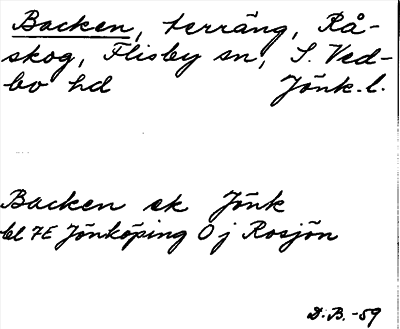 Backen, terräng, Rå-
skog, Flisby sn, S. Ved-
bo hd Jönk. l.
Backen ek Jönk
bl 7E Jönköping 0 j Rosjön
D.B.-59